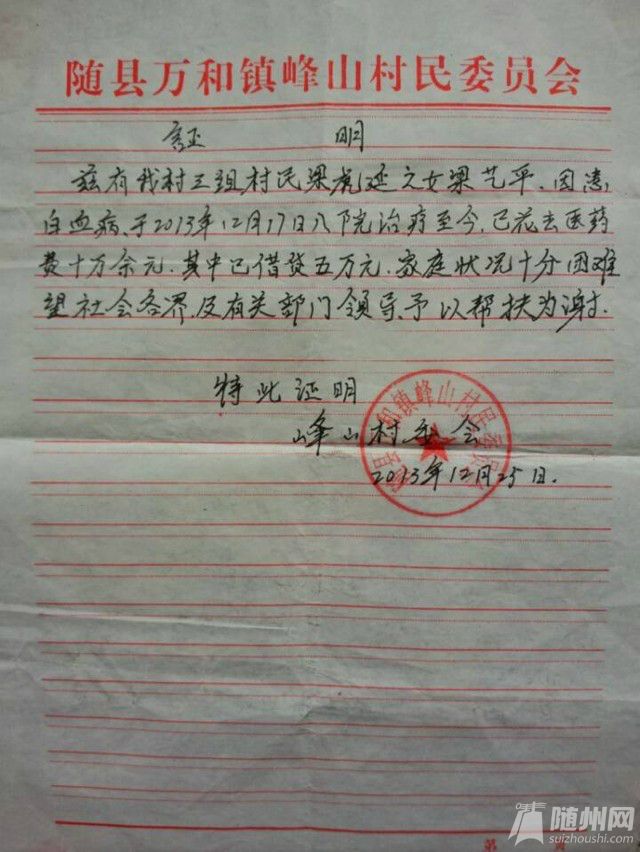 随县万和镇峰山村民委员会
证 明
兹有我村三组村民梁虎延之女梁艺平、因患
白血病、于2013年12月17日入院治疗至今、已花去医药
费十万余元、其中已借贷五万元、家庭状况十分困难
望社会各界、及有关部门领导、予以帮扶为谢.
特此证明
峰山村委会
2013年12月25日.
县万和镇峰山村民委员
第
随州网
suizhoushi.com